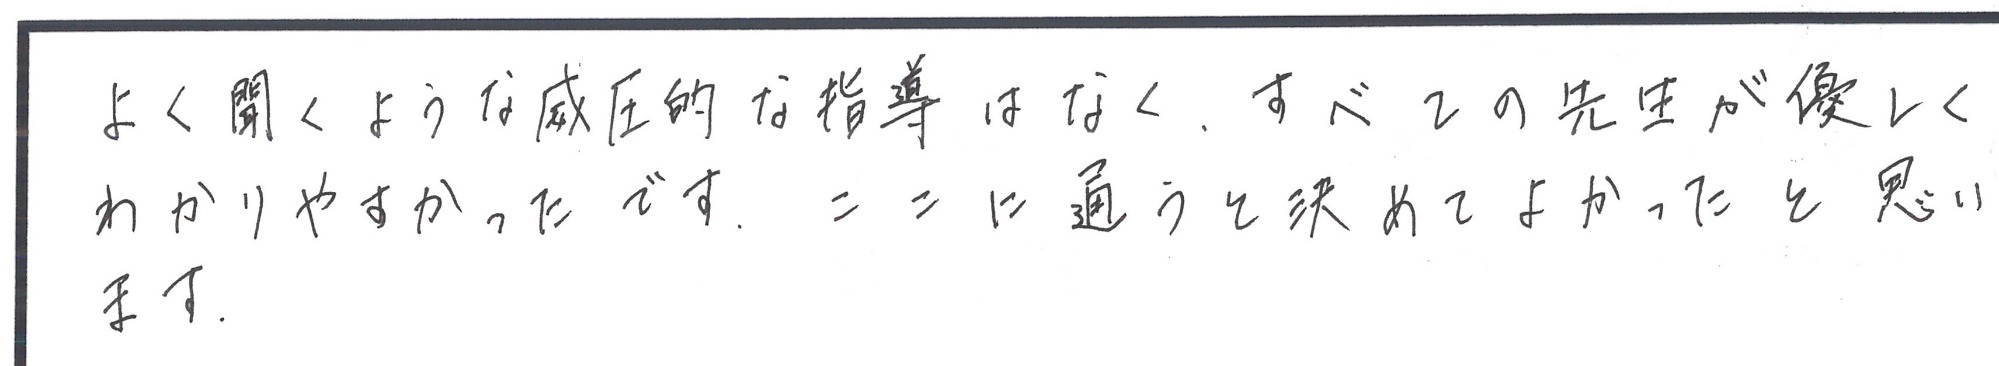 よく聞くような威圧的な指導はなく、すべての先生が優しく
わかりやすかったです. ここに通うと決めてよかったと思い
ます.